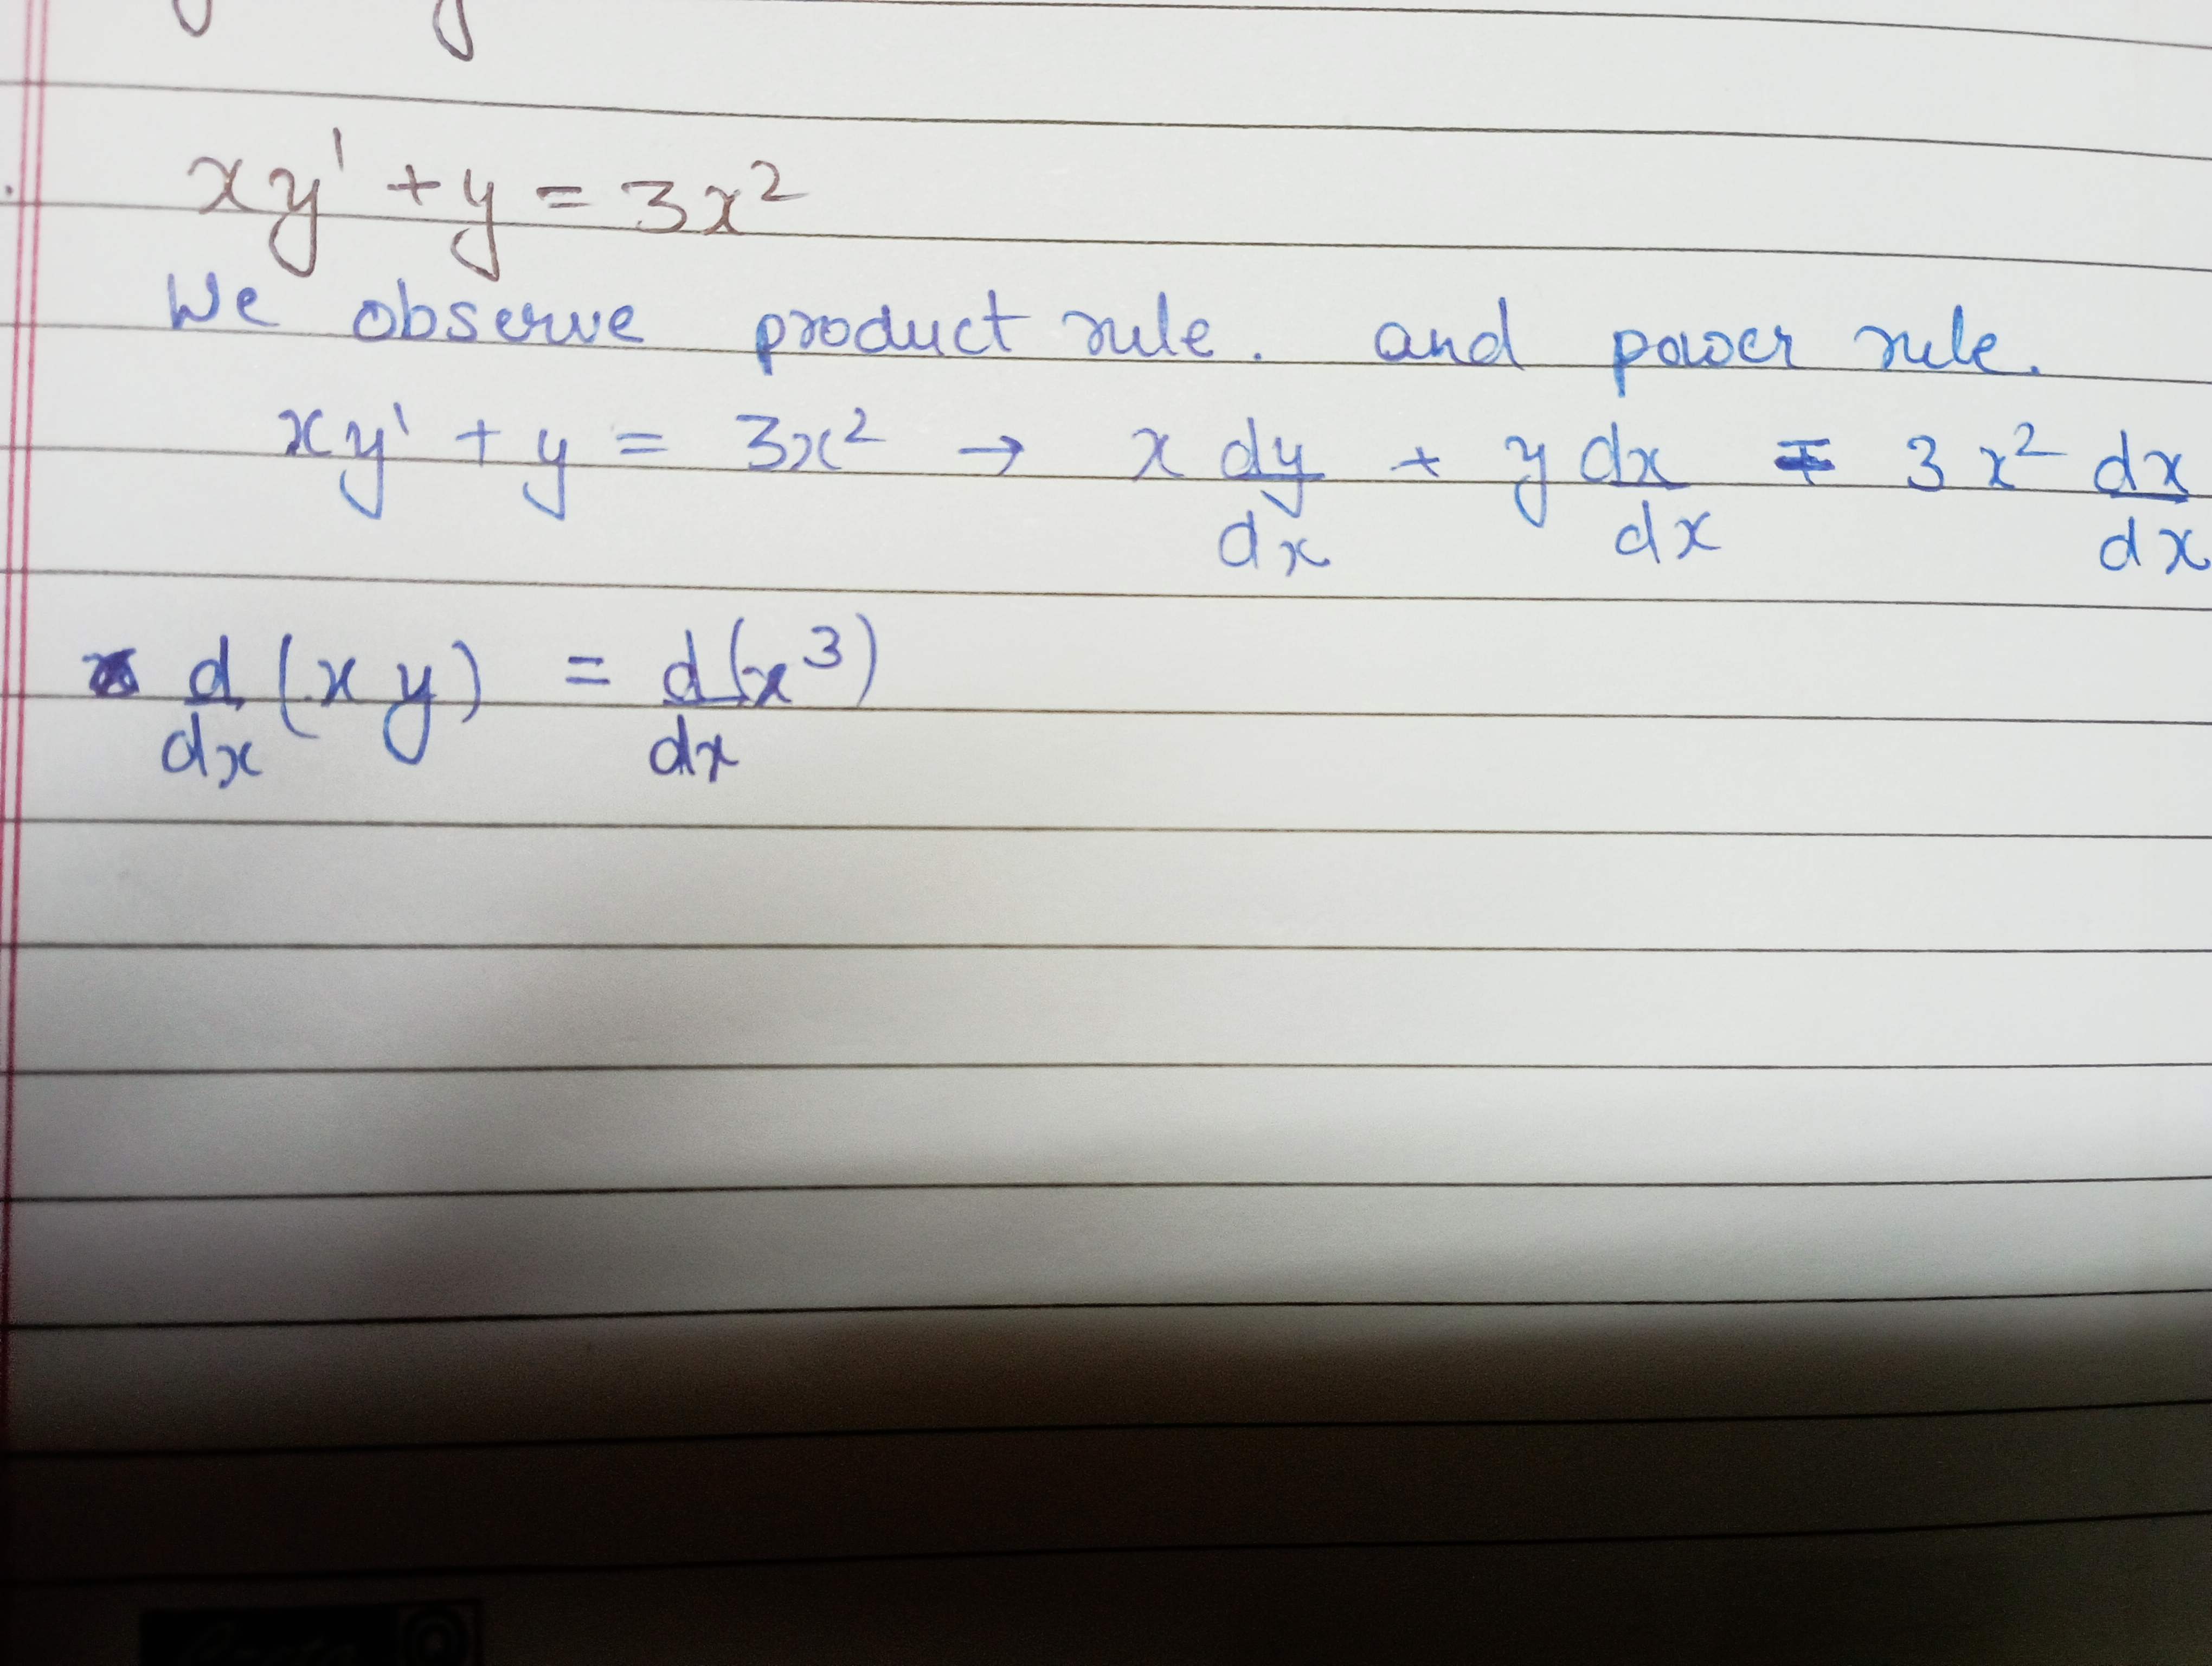 xy' + y = 3x²
We observe product rule. and power rule.
xy' + y = 3x² → x dy/dx + y dx/dx = 3x² dx/dx
d/dx (xy) = d/dx (x³)